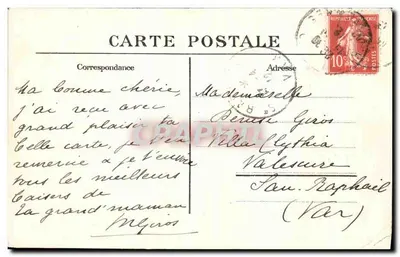 CARTE POSTALE
Correspondance
Adresse
Ma bonne chérie,
j'ai reçu avec
grand plaisir ta
belle carte, je t'en
remercie & je t'envoie
tous les meilleurs
baisers de
ta grand'maman
MGiros
Mademoiselle
Giros
Villa Clythia
Valescure
San-Raphaël
(Var)
10